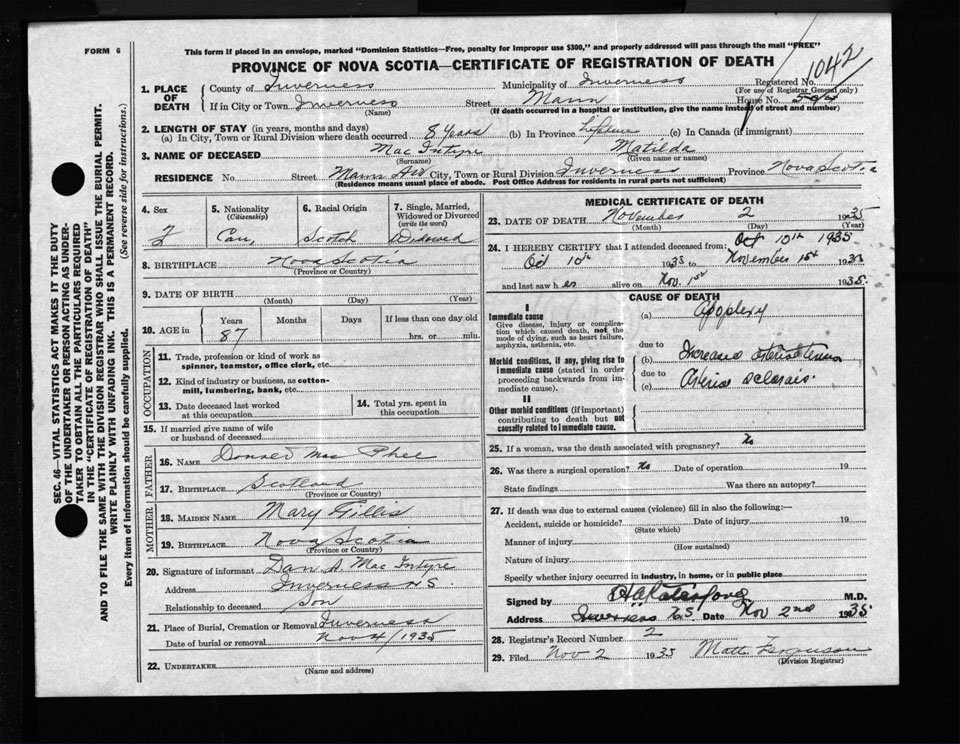 FORM 6
This form if placed in an envelope, marked "Dominion Statistics—Free, penalty for improper use $300," and properly addressed will pass through the mail "FREE"
PROVINCE OF NOVA SCOTIA—CERTIFICATE OF REGISTRATION OF DEATH
1042
1. PLACE OF DEATH
County of Inverness Municipality of Inverness Registered No.
(For use of Registrar General only)
If in City or Town Inverness Street Mann House No.
(Name) (If death occurred in a hospital or institution, give the name instead of street and number)
2. LENGTH OF STAY (in years, months and days)
(a) In City, Town or Rural Division where death occurred 8 years (b) In Province Lifetime (c) In Canada (if immigrant)
3. NAME OF DECEASED Mac Intyre Matilda
(Surname) (Given name or names)
RESIDENCE No. Street Mann City, Town or Rural Division Inverness Province Nova Scotia
(Residence means usual place of abode. Post Office Address for residents in rural parts not sufficient)
4. Sex
F
5. Nationality
(Citizenship)
Can,
6. Racial Origin
Scotch
7. Single, Married, Widowed or Divorced
(write the word)
Widowed
8. BIRTHPLACE Nova Scotia
(Province or Country)
9. DATE OF BIRTH
(Month) (Day) (Year)
10. AGE in Years Months Days If less than one day old
87 hrs. or min.
OCCUPATION
11. Trade, profession or kind of work as spinner, teamster, office clerk, etc.
12. Kind of industry or business, as cotton-mill, lumbering, bank, etc.
13. Date deceased last worked at this occupation
14. Total yrs. spent in this occupation
15. If married give name of wife or husband of deceased
FATHER
16. NAME Donald Mac Phee
17. BIRTHPLACE Scotland
(Province or Country)
MOTHER
18. MAIDEN NAME Mary Gillis
19. BIRTHPLACE Nova Scotia
(Province or Country)
20. Signature of informant Dan A. Mac Intyre
Address Inverness N.S.
Relationship to deceased Son
21. Place of Burial, Cremation or Removal Inverness
Date of burial or removal Nov 4/1935
22. UNDERTAKER
(Name and address)
MEDICAL CERTIFICATE OF DEATH
23. DATE OF DEATH November 2 1935
(Month) (Day) (Year)
24. I HEREBY CERTIFY that I attended deceased from: Oct 10th 1935
Oct 10th 1935 to November 1st 1935
and last saw her alive on Nov. 1st 1935.
CAUSE OF DEATH
I
Immediate cause
Give disease, injury or complication which caused death, not the mode of dying, such as heart failure, asphyxia, asthenia, etc.
(a) Apoplexy
due to
Morbid conditions, if any, giving rise to immediate cause (stated in order proceeding backwards from immediate cause).
(b) Increased
due to
(c)
II
Other morbid conditions (if important) contributing to death but not causally related to immediate cause.
25. If a woman, was the death associated with pregnancy? No
26. Was there a surgical operation? No Date of operation 19
State findings Was there an autopsy?
27. If death was due to external causes (violence) fill in also the following:—
Accident, suicide or homicide? Date of injury 19
(State which)
Manner of injury
(How sustained)
Nature of injury
Specify whether injury occurred in industry, in home, or in public place
Signed by M.D.
Address Inverness N.S. Date Nov 2nd 1935.
28. Registrar's Record Number 2
29. Filed Nov 2 1935 Matt Ferguson
(Division Registrar)
SEC. 46—VITAL STATISTICS ACT MAKES IT THE DUTY
OF THE UNDERTAKER OR PERSON ACTING AS UNDER-
TAKER TO OBTAIN ALL THE PARTICULARS REQUIRED
IN THE "CERTIFICATE OF REGISTRATION OF DEATH"
AND TO FILE THE SAME WITH THE DIVISION REGISTRAR WHO SHALL ISSUE THE BURIAL PERMIT.
WRITE PLAINLY WITH UNFADING INK. THIS IS A PERMANENT RECORD.
Every item of information should be carefully supplied. (See reverse side for instructions.)